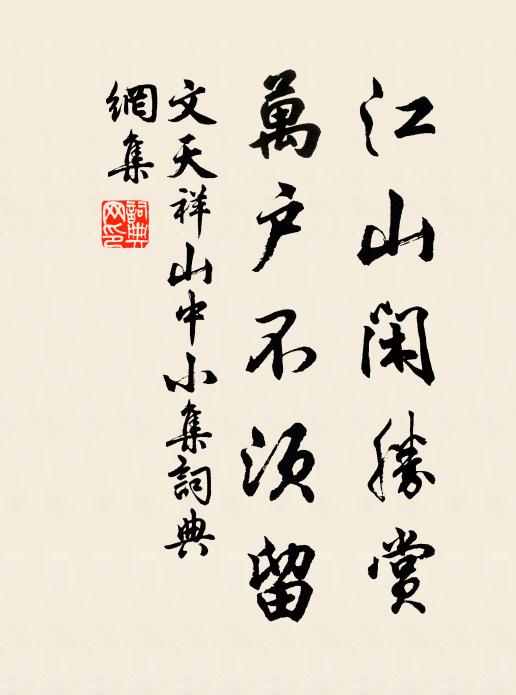 江山閑勝賞
萬户不須留
文天祥山中小集詞典
網集
詞典網印